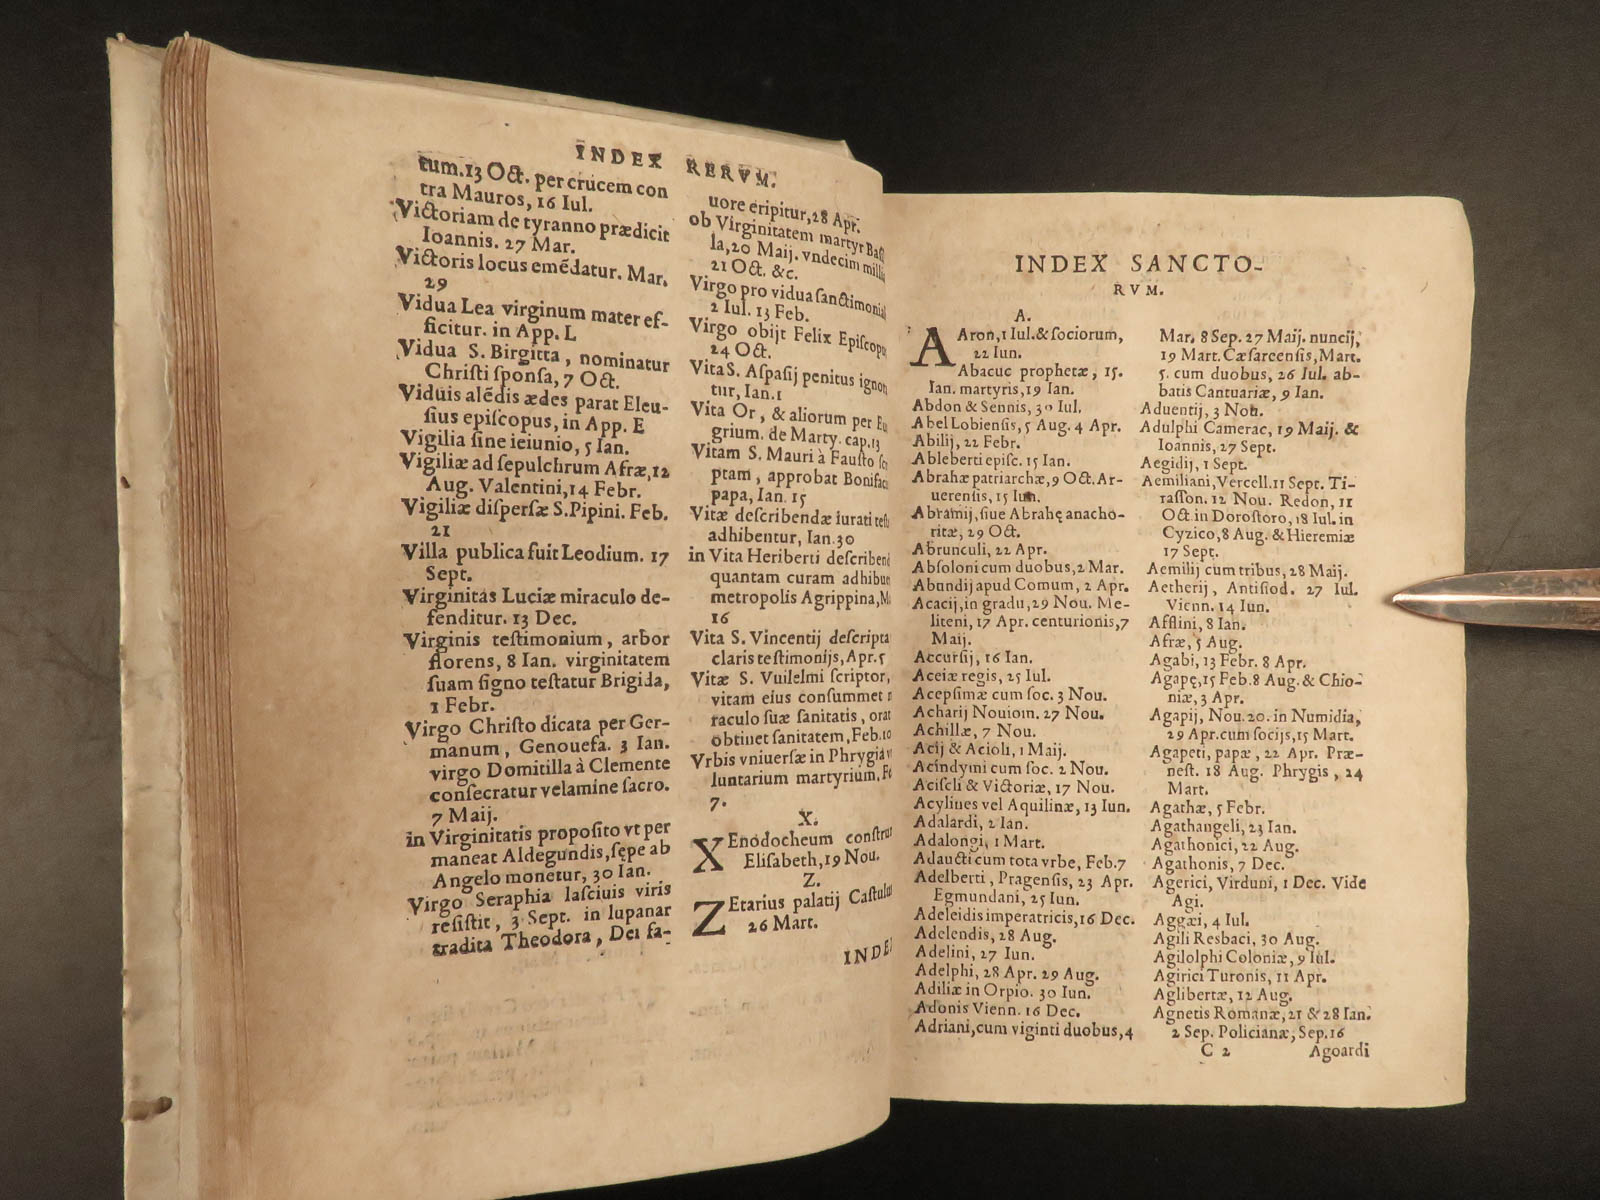 INDEX RERVM.
tum. 13 Oct. per crucem con
tra Mauros, 16 Iul.
Victoriam de tyranno prædicit
Ioannis. 27 Mar.
Victoris locus emēdatur. Mar.
29
Vidua Lea virginum mater ef-
ficitur. in App. L
Vidua S. Birgitta, nominatur
Christi sponsa, 7 Oct.
Viduis alēdis ædes parat Eleu-
sius episcopus, in App. E
Vigilia sine ieiunio, 5 Ian.
Vigiliæ ad sepulchrum Afræ, 12
Aug. Valentini, 14 Febr.
Vigiliæ dispersæ S. Pipini. Feb.
21
Villa publica fuit Leodium. 17
Sept.
Virginitas Luciæ miraculo de-
fenditur. 13 Dec.
Virginis testimonium, arbor
florens, 8 Ian. virginitatem
suam signo testatur Brigida,
1 Febr.
Virgo Christo dicata per Ger-
manum, Genouefa. 3 Ian.
virgo Domitilla à Clemente
consecratur velamine sacro.
7 Maij.
in Virginitatis proposito vt per
maneat Aldegundis, sępe ab
Angelo monetur, 30 Ian.
Virgo Seraphia lasciuis viris
resistit, 3 Sept. in lupanar
tradita Theodora, Dei fa-
uore eripitur, 28 Apr.
ob Virginitatem martyr Basil
la, 20 Maij. vndecim
21 Oct. &c.
Virgo pro vidua
2 Iul. 13 Feb.
Virgo obijt Felix
24 Oct.
Vita S. Aspasij penitus
tur, Ian. 1
Vita Or, & aliorum per
grium. de Marty. cap. 13
Vitam S. Mauri à Fausto
ptam, approbat
papa, Ian. 15
Vitæ describendæ iurati
adhibentur, Ian. 30
in Vita Heriberti
quantam curam
metropolis Agrippina,
16
Vita S. Vincentij descripta
claris testimonijs, Apr. 5
Vitæ S. Vuilelmi scriptor,
vitam eius consummet
raculo suæ sanitatis,
obtinet sanitatem, Feb. 10
Vrbis vniuersæ in Phrygia
luntarium martyrium,
7.
X.
XEnodocheum
Elisabeth, 19 Nou.
Z.
ZEtarius palatij
26 Mart.
INDEX SANCTO-
RVM.
A.
AAron, 1 Iul. & sociorum,
22 Iun.
Abacuc prophetæ, 15.
Ian. martyris, 19 Ian.
Abdon & Sennis, 30 Iul.
Abel Lobiensis, 5 Aug. 4 Apr.
Abilij, 22 Febr.
Ableberti episc. 15 Ian.
Abrahæ patriarchæ, 9 Oct. Ar-
uerensis, 15 Iun.
Abramij, siue Abrahę anacho-
ritæ, 29 Oct.
Abrunculi, 22 Apr.
Absoloni cum duobus, 2 Mar.
Abundij apud Comum, 2 Apr.
Acacij, in gradu, 29 Nou. Me-
liteni, 17 Apr. centurionis, 7
Maij.
Accursij, 16 Ian.
Aceiæ regis, 25 Iul.
Acepsimæ cum soc. 3 Nou.
Acharij Nouiom. 27 Nou.
Achillæ, 7 Nou.
Acij & Acioli, 1 Maij.
Acindymi cum soc. 2 Nou.
Aciscli & Victoriæ, 17 Nou.
Acylines vel Aquilinæ, 13 Iun.
Adalardi, 2 Ian.
Adalongi, 1 Mart.
Adaucti cum tota vrbe, Feb. 7
Adelberti, Pragensis, 23 Apr.
Egmundani, 25 Iun.
Adeleidis imperatricis, 16 Dec.
Adelendis, 28 Aug.
Adelini, 27 Iun.
Adelphi, 28 Apr. 29 Aug.
Adiliæ in Orpio. 30 Iun.
Adonis Vienn. 16 Dec.
Adriani, cum viginti duobus, 4
Mar. 8 Sep. 27 Maij. nuncij,
19 Mart. Cæsareensis, Mart.
5. cum duobus, 26 Iul. ab-
batis Cantuariæ, 9 Ian.
Aduentij, 3 Nou.
Adulphi Camerac, 19 Maij. &
Ioannis, 27 Sept.
Aegidij, 1 Sept.
Aemiliani, Vercell. 11 Sept. Ti-
rasson. 12 Nou. Redon, 11
Oct. in Dorostoro, 18 Iul. in
Cyzico, 8 Aug. & Hieremiæ
17 Sept.
Aemilij cum tribus, 28 Maij.
Aetherij, Antisiod. 27 Iul.
Vienn. 14 Iun.
Afflini, 8 Ian.
Afræ, 5 Aug.
Agabi, 13 Febr. 8 Apr.
Agapę, 15 Feb. 8 Aug. & Chio-
niæ, 3 Apr.
Agapij, Nou. 20. in Numidia,
29 Apr. cum socijs, 15 Mart.
Agapeti, papæ, 22 Apr. Præ-
nest. 18 Aug. Phrygis, 24
Mart.
Agathæ, 5 Febr.
Agathangeli, 23 Ian.
Agathonici, 22 Aug.
Agathonis, 7 Dec.
Agerici, Virduni, 1 Dec. Vide
Agi.
Aggæi, 4 Iul.
Agili Resbaci, 30 Aug.
Agilolphi Coloniæ, 9 Iul.
Agirici Turonis, 11 Apr.
Aglibertæ, 12 Aug.
Agnetis Romanæ, 21 & 28 Ian.
2 Sep. Policianæ, Sep. 16
C 2 Agoardi